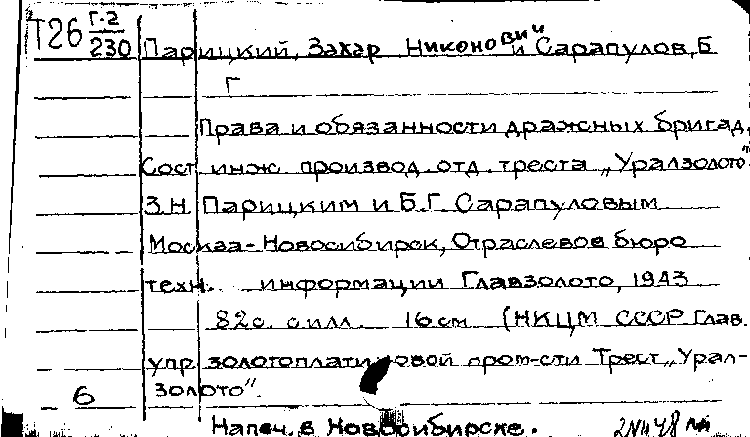 Т26 Г-2
230
Парицкий, Захар Никонович и Сарапулов, Б
Г
Права и обязанности дражных бригад,
Сост. инж. производ. отд. треста „Уралзолото"
З.Н. Парицким и Б.Г. Сарапуловым
Москва-Новосибирск, Отраслевое бюро
техн. информации Главзолото, 1943
82с. с илл. 16см (НКЦМ СССР Глав.
упр. золотоплатиновой пром-сти Трест „Урал-
6 золото".
Напеч. в Новосибирске.